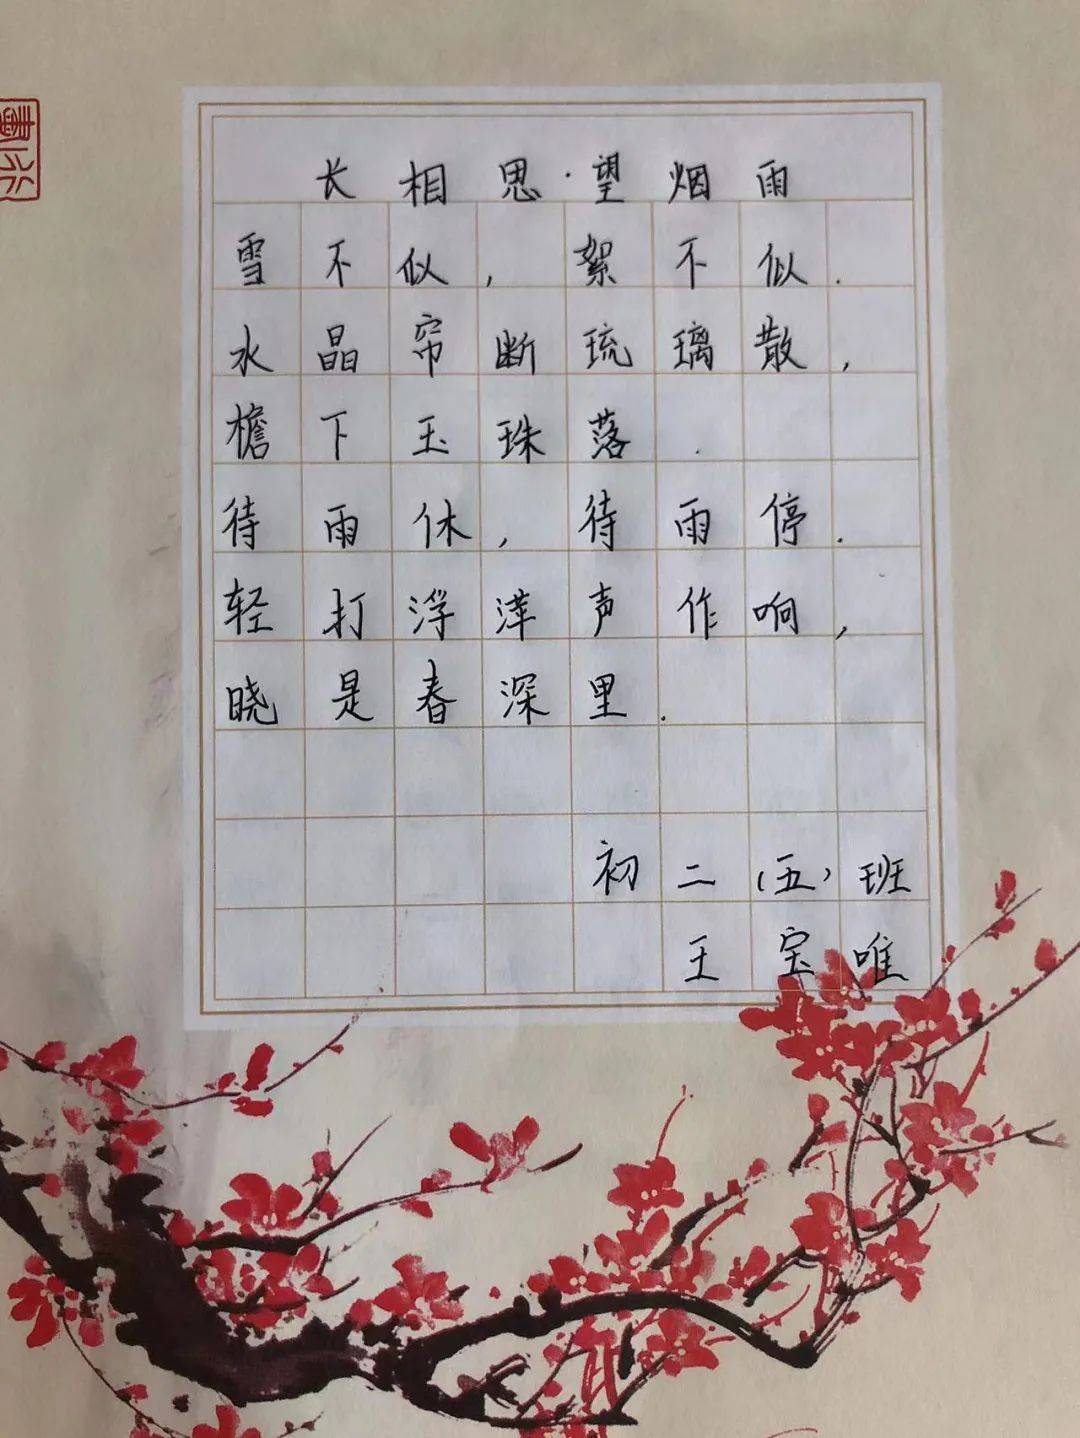 长相思·望烟雨
雪不似，絮不似.
水晶帘断琉璃散，
檐下玉珠落.
待雨休，待雨停.
轻打浮萍声作响，
晓是春深里.
初二（五）班
王宝唯